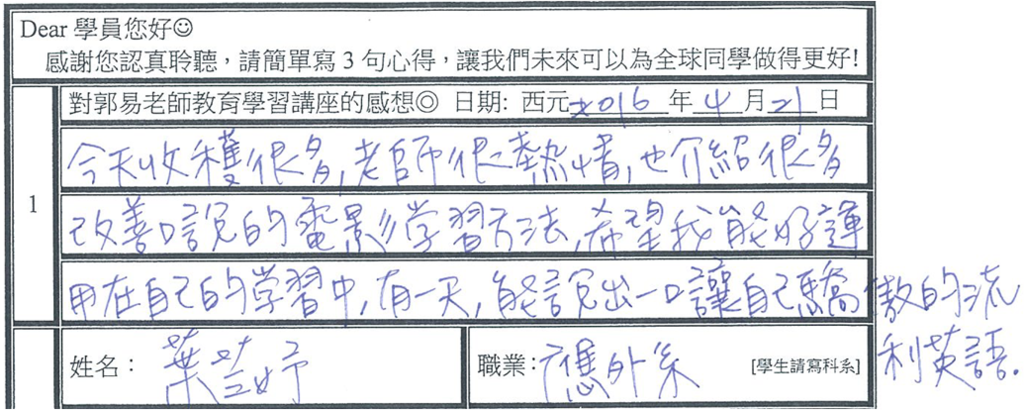 Dear 學員您好☺
感謝您認真聆聽，請簡單寫 3 句心得，讓我們未來可以為全球同學做得更好!
1
對郭易老師教育學習講座的感想◎ 日期: 西元2016年4月21日
今天收穫很多,老師很熱情,也介紹很多
改善口說的電影学習方法,希望我能好運
用在自己的学習中,有一天,能說出一口讓自己驕傲的流
利英語.
姓名：葉芸妤
職業：應外系 [學生請寫科系]